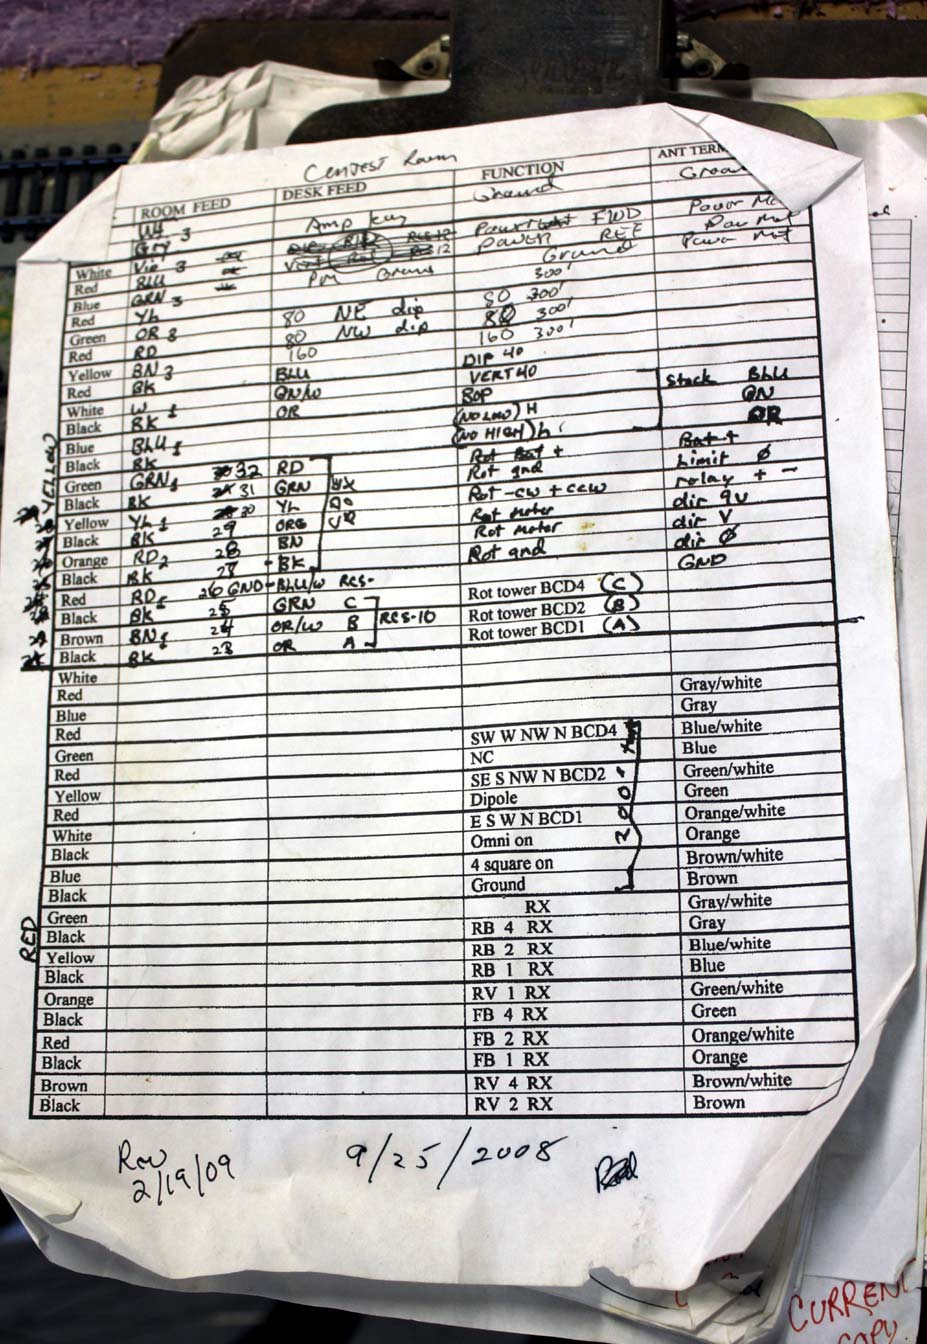 Contest Room
ROOM FEED DESK FEED FUNCTION ANT TERM
WH Ground
Gry 3 Amp key Power FWD Power Met
White Vio 3 RCS 12 POWER REF
Red BLU Ground
Blue GRN 3 300'
Red YL 80 NE dip 80 300'
Green OR 3 80 NW dip 80 300'
Red RD 160 160 300'
Yellow BN 3 DIP 40
Red BK BLU VERT 40 Stack BLU
White W 1 GN/W BOP GN
Black BK OR (NO LOW) H OR
Blue BLU 1 (NO HIGH) h
Black BK Rot Bat + Bat +
Green GRN 1 32 RD Rot gnd Limit Ø
Black BK 31 GRN Rot -cw + ccw relay + -
Yellow YL 1 30 YL Rot Motor dir 9V
Black BK 29 ORG Rot Motor dir V
Orange RD 2 28 BN Rot gnd dir Ø
Black BK 27 BK GND
Red RD 26 GND BLU/W RCS- Rot tower BCD4 (C)
Black BK 25 GRN C RCS-10 Rot tower BCD2 (B)
Brown BN 24 OR/W B Rot tower BCD1 (A)
Black BK 23 OR A
YELLOW
White
Red Gray/white
Blue Gray
Red SW W NW N BCD4 Blue/white
Green NC Blue
Red SE S NW N BCD2 Green/white
Yellow Dipole Green
Red E S W N BCD1 Orange/white
White Omni on Orange
Black 4 square on Brown/white
Blue Ground Brown
Black RX Gray/white
Green RB 4 RX Gray
Black RB 2 RX Blue/white
Yellow RB 1 RX Blue
Black RV 1 RX Green/white
Orange FB 4 RX Green
Black FB 2 RX Orange/white
Red FB 1 RX Orange
Black RV 4 RX Brown/white
Brown RV 2 RX Brown
Black
RED
Rev
2/19/09
9/25/2008
CURRENT
COPY